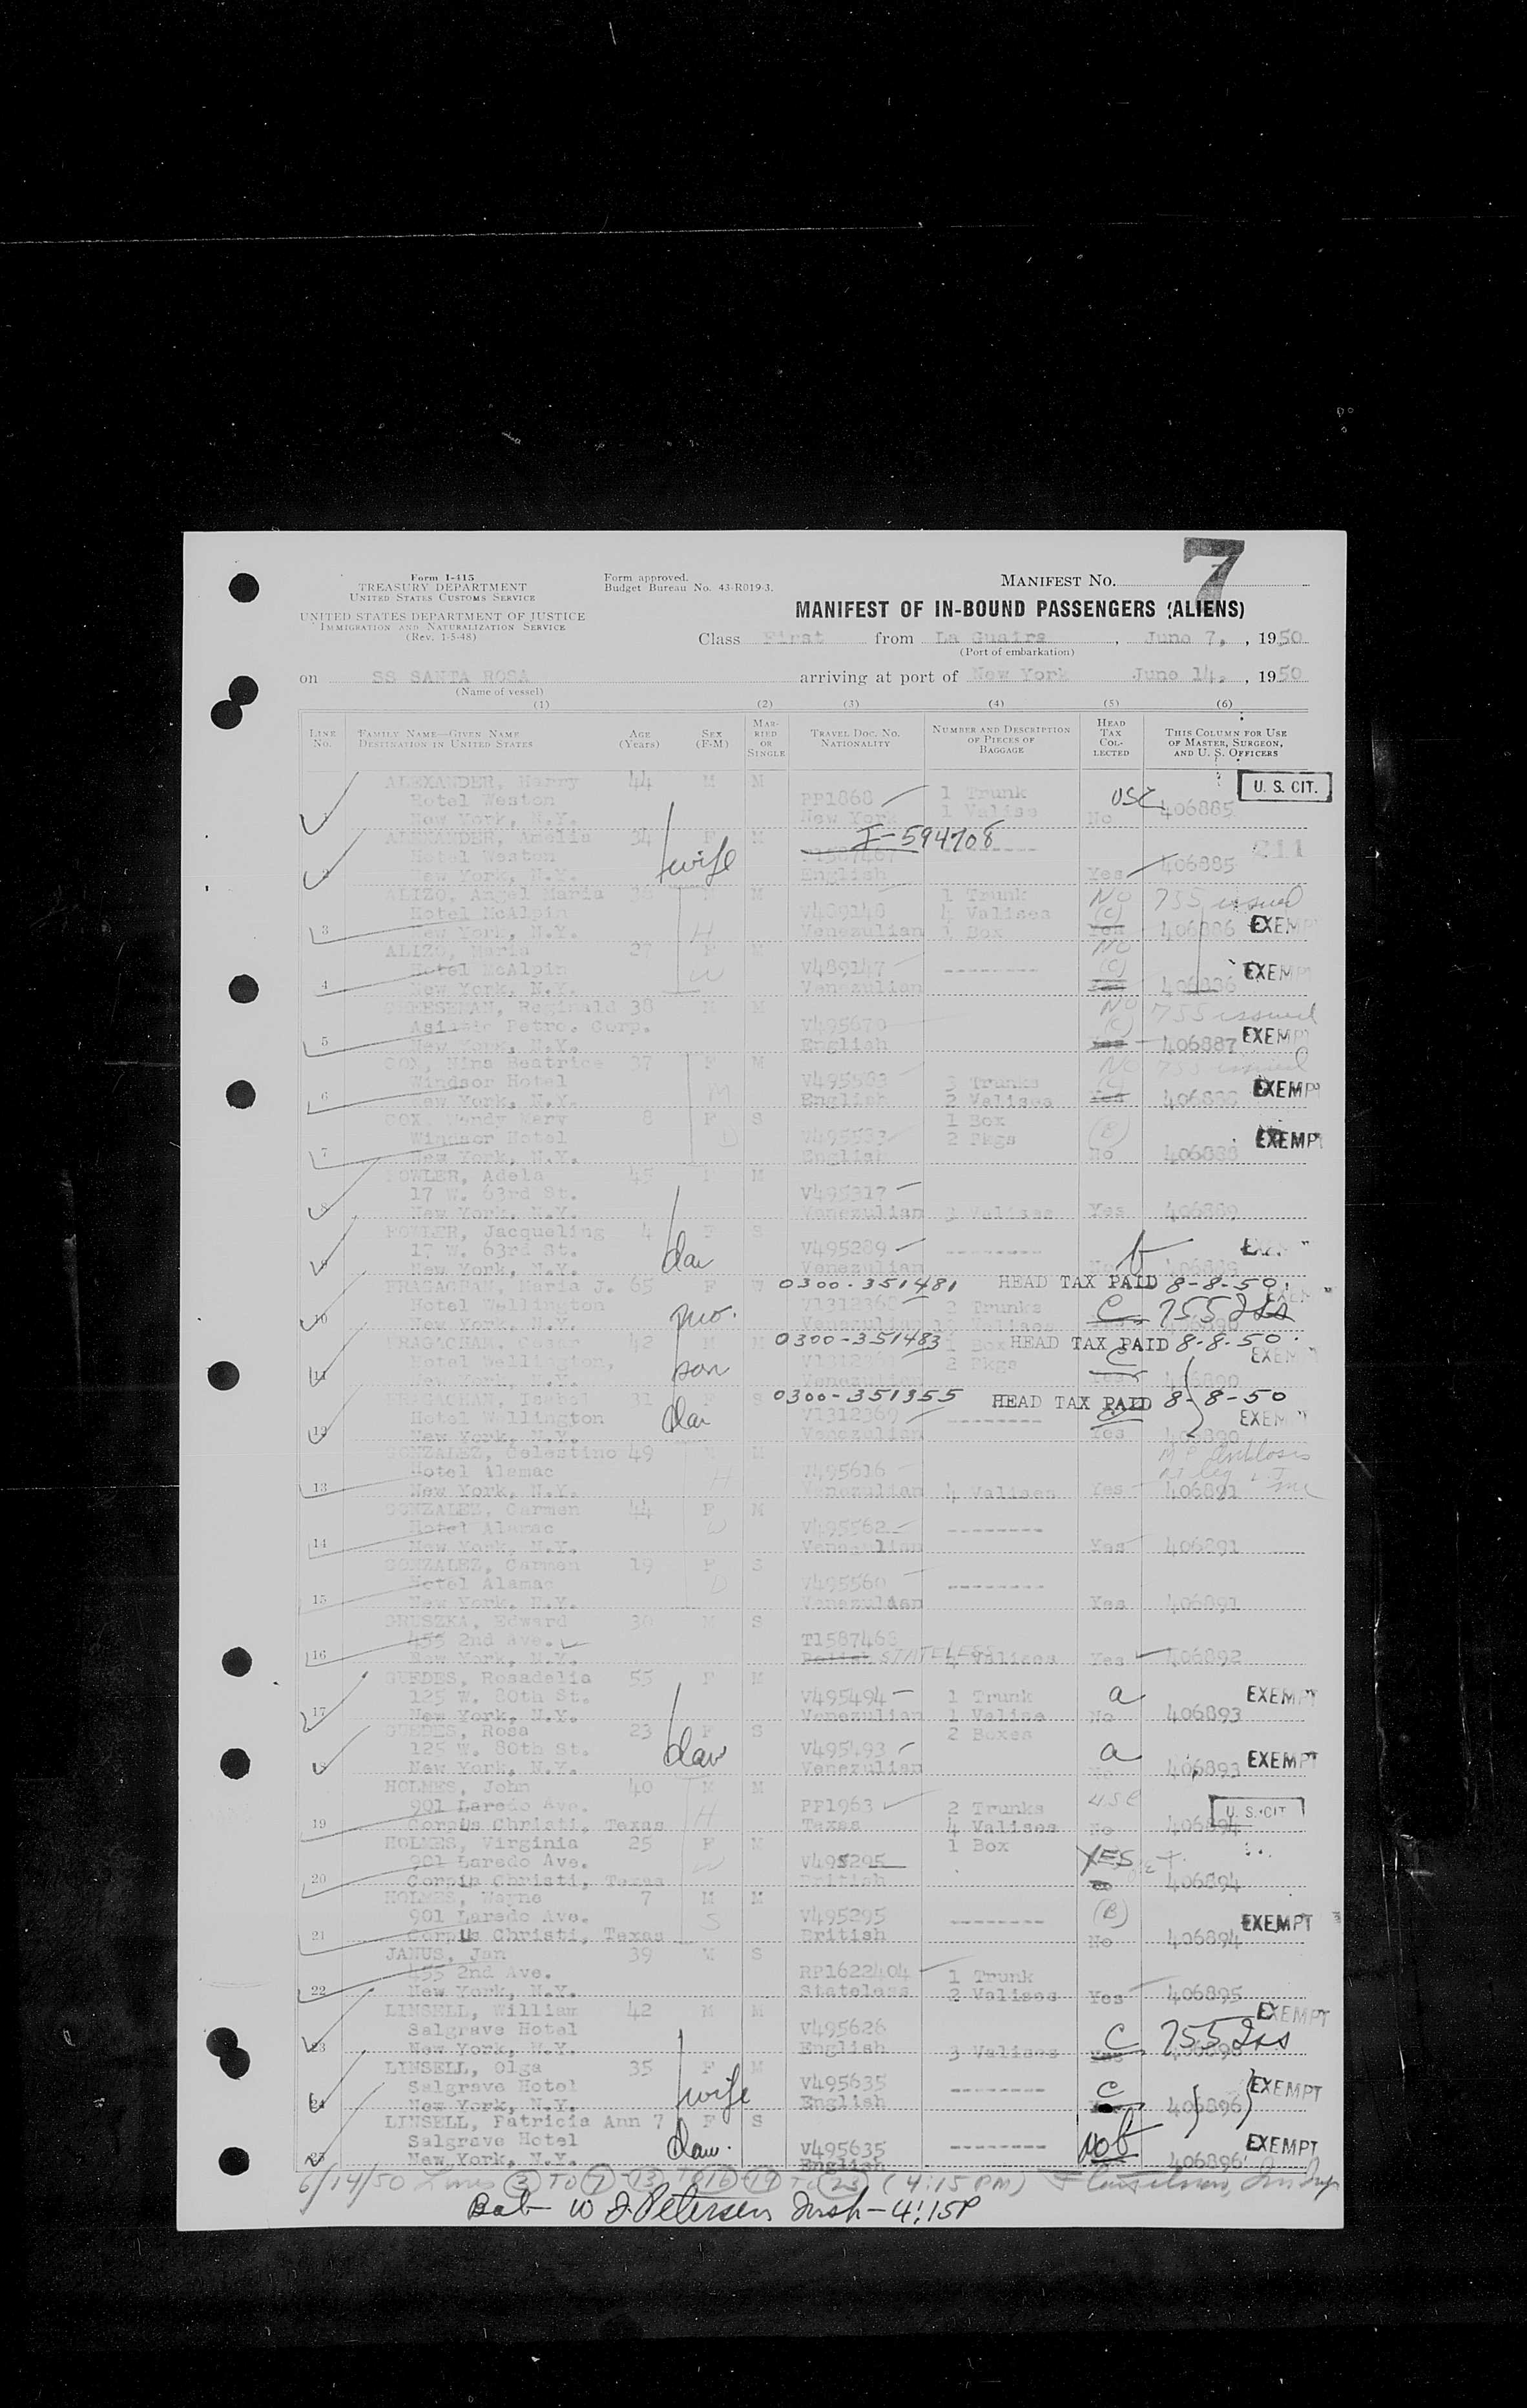 7
Form I-415
TREASURY DEPARTMENT
UNITED STATES CUSTOMS SERVICE
UNITED STATES DEPARTMENT OF JUSTICE
IMMIGRATION AND NATURALIZATION SERVICE
(Rev. 1-5-48)
Form approved.
Budget Bureau No. 43-R019-3.
MANIFEST NO.
MANIFEST OF IN-BOUND PASSENGERS (ALIENS)
Class First from La Guaira, June 7, 1950
(Port of embarkation)
on SS SANTA ROSA arriving at port of New York June 14, 1950
(Name of vessel)
(1) (2) (3) (4) (5) (6)
LINE NO. FAMILY NAME—GIVEN NAME DESTINATION IN UNITED STATES AGE (Years) SEX (F-M) MARRIED OR SINGLE TRAVEL DOC. NO. NATIONALITY NUMBER AND DESCRIPTION OF PIECES OF BAGGAGE HEAD TAX COLLECTED THIS COLUMN FOR USE OF MASTER, SURGEON, AND U. S. OFFICERS
ALEXANDER, Harry 44 M M U. S. CIT.
Hotel Weston PP1868 1 Trunk USC
New York, N.Y. New York 1 Valise No 406885
ALEXANDER, Amelia 34 F M I-594708
Hotel Weston wife 211
New York, N.Y. English Yes 406885
ALIZO, Angel Maria 38 M 1 Trunk No 755 issued
Hotel McAlpin V489148 4 Valises (C)
3 New York, N.Y. H Venezulian 1 Box Yes 406886 EXEMPT
ALIZO, Maria 27 F M No
Hotel McAlpin W V489147 -------- (C) EXEMPT
4 New York, N.Y. Venezulian 406886
Reginald 38 M M No 755 issued
Asiatic Petro. Corp. V495670 (C)
5 New York, N.Y. English Yes 406887 EXEMPT
COX, Nina Beatrice 37 F M No 755 issued
Windsor Hotel M V495583 3 Trunks (C)
6 New York, N.Y. English 2 Valises Yes 406888 EXEMPT
COX, Wendy Mary 8 F S 1 Box
Windsor Hotel D V495583 2 Pkgs (B) EXEMPT
7 New York, N.Y. English No 406888
FOWLER, Adela 45 F M
17 W. 63rd St. V495317
8 New York, N.Y. Venezulian 3 Valises Yes 406889
FOWLER, Jacqueling 4 F S
17 W. 63rd St. dau V495289 -------- b
9 New York, N.Y. Venezulian No 406889
Maria J. 65 F W 0300-351481 HEAD TAX PAID 8-8-50
Hotel Wellington mo. V1312368 2 Trunks C 755 Iss
10 New York, N.Y. Venezulian 406890
42 M M 0300-351483 1 Box HEAD TAX PAID 8-8-50
Hotel Wellington, son 2 Pkgs C EXEMPT
11 New York, N.Y. Venezulian Yes 406890
Isabel 31 F S 0300-351355 HEAD TAX PAID 8-8-50
Hotel Wellington dau V1312369 -------- EXEMPT
12 New York, N.Y. Venezulian Yes 406890
GONZALEZ, Celestino 49 M M
Hotel Alamac H V495616
13 New York, N.Y. Venezulian 4 Valises Yes 406891
GONZALEZ, Carmen 44 F M
Hotel Alamac W V495562 --------
14 New York, N.Y. Venezulian Yes 406891
GONZALEZ, Carmen 19 F S
Hotel Alamac D V495560 --------
15 New York, N.Y. Venezulian Yes 406891
GRUSZKA, Edward 30 M S
455 2nd Ave. T1587468
16 New York, N.Y. Polish STATELESS 4 Valises Yes 406892
GUEDES, Rosadelia 55 F M
125 W. 80th St. V495494 1 Trunk a EXEMPT
17 New York, N.Y. Venezulian 1 Valise No 406893
GUEDES, Rosa 23 F S 2 Boxes
125 W. 80th St. dau V495493 a EXEMPT
New York, N.Y. Venezulian No 406893
HOLMES, John 40 M M
901 Laredo Ave. H PP1963 2 Trunks USC U. S. CIT
19 Corpus Christi, Texas Texas 4 Valises No 406894
HOLMES, Virginia 25 F M 1 Box
901 Laredo Ave. W V495295 YES
20 Corpus Christi, Texas British 406894
HOLMES, Wayne 7 M M
901 Laredo Ave. S V495295 -------- (B) EXEMPT
21 Corpus Christi, Texas British No 406894
JANUS, Jan 39 M S
455 2nd Ave. RP1622404 1 Trunk
22 New York, N.Y. Stateless 2 Valises Yes 406895
LINSELL, William 42 M M EXEMPT
Salgrave Hotel V495626 C 755 Iss
23 New York, N.Y. English 3 Valises Yes 406896
LINSELL, Olga 35 F M
Salgrave Hotel wife V495635 -------- C EXEMPT
24 New York, N.Y. English 406896
LINSELL, Patricia Ann 7 F S
Salgrave Hotel dau. V495635 -------- No b EXEMPT
25 New York, N.Y. English 406896
6/14/50 Lines 3 TO 7 - 13 TO 16 - 19 TO 23 (4:15 PM)
Bal- W J Petersen Insp - 4:15P